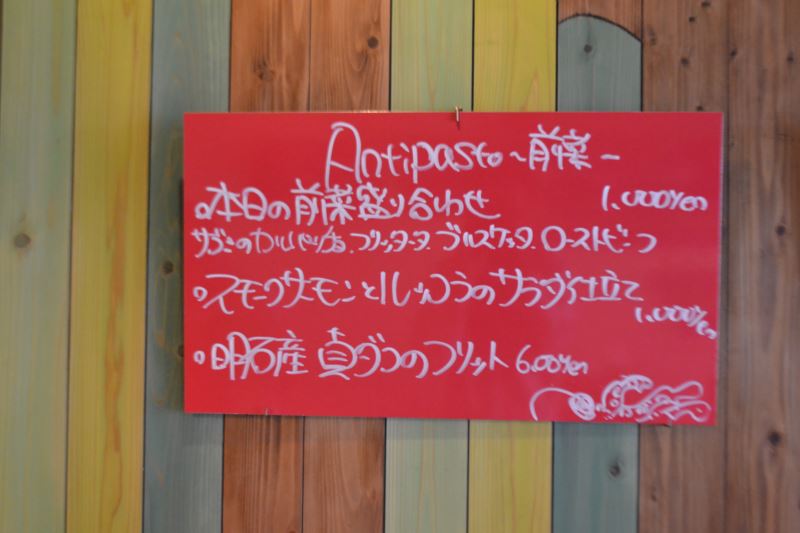 Antipasto～前菜－
本日の前菜盛り合わせ 1,000yen
サーモンのカルパッチョ.フリッタータ.ブルスケッタ.ローストビーフ
スモークサーモンとルッコラのサラダ仕立て
1,000yen
明石産 真ダコのフリット 600yen